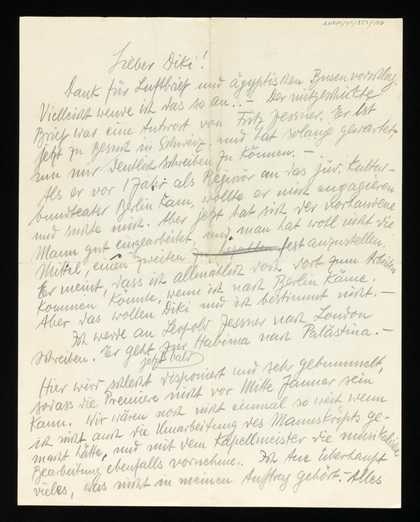 Lieber Diki!
Dank für Luftbrief und ägyptischen Busenvorschlag.
Vielleicht wende ich das so an.. - Der mitgeschickte
Brief war eine Antwort von Fritz Jessner. Er ist
jetzt zu Besuch in Schweiz und hat solange gewartet
um mir deutlich schreiben zu können. -
Als er vor 1 Jahr als Regisör an das jüd. Kultur-
bundteater Berlin kam, wollte er mich engagieren
und suchte mich. Aber jetzt hat sich der vorhandene
Mann gut eingearbeitet, und man hat wohl nicht die
Mittel, einen zweiten fest anzustellen.
Er meint, dass ich allmählich doch dort zum Arbeiten
kommen könnte, wenn ich nach Berlin käme.
Aber das wollen Diki und ich bestimmt nicht. -
Ich werde an Leopold Jessner nach London
schreiben. Er geht zur Habima nach Palästina. -
jetzt bald
Hier wird schlecht disponiert und sehr gebummelt,
sodass die Premiere nicht vor Mitte Jänner sein
kann. Wir wären noch nicht einmal so weit wenn
ich nicht auch die Umarbeitung des Manuskripts ge-
macht hätte, und mit dem Kapellmeister die musikalische
Bearbeitung ebenfalls vornehme. Ich tue überhaupt
vieles, was nicht in meinen Auftrag gehört. - Alles